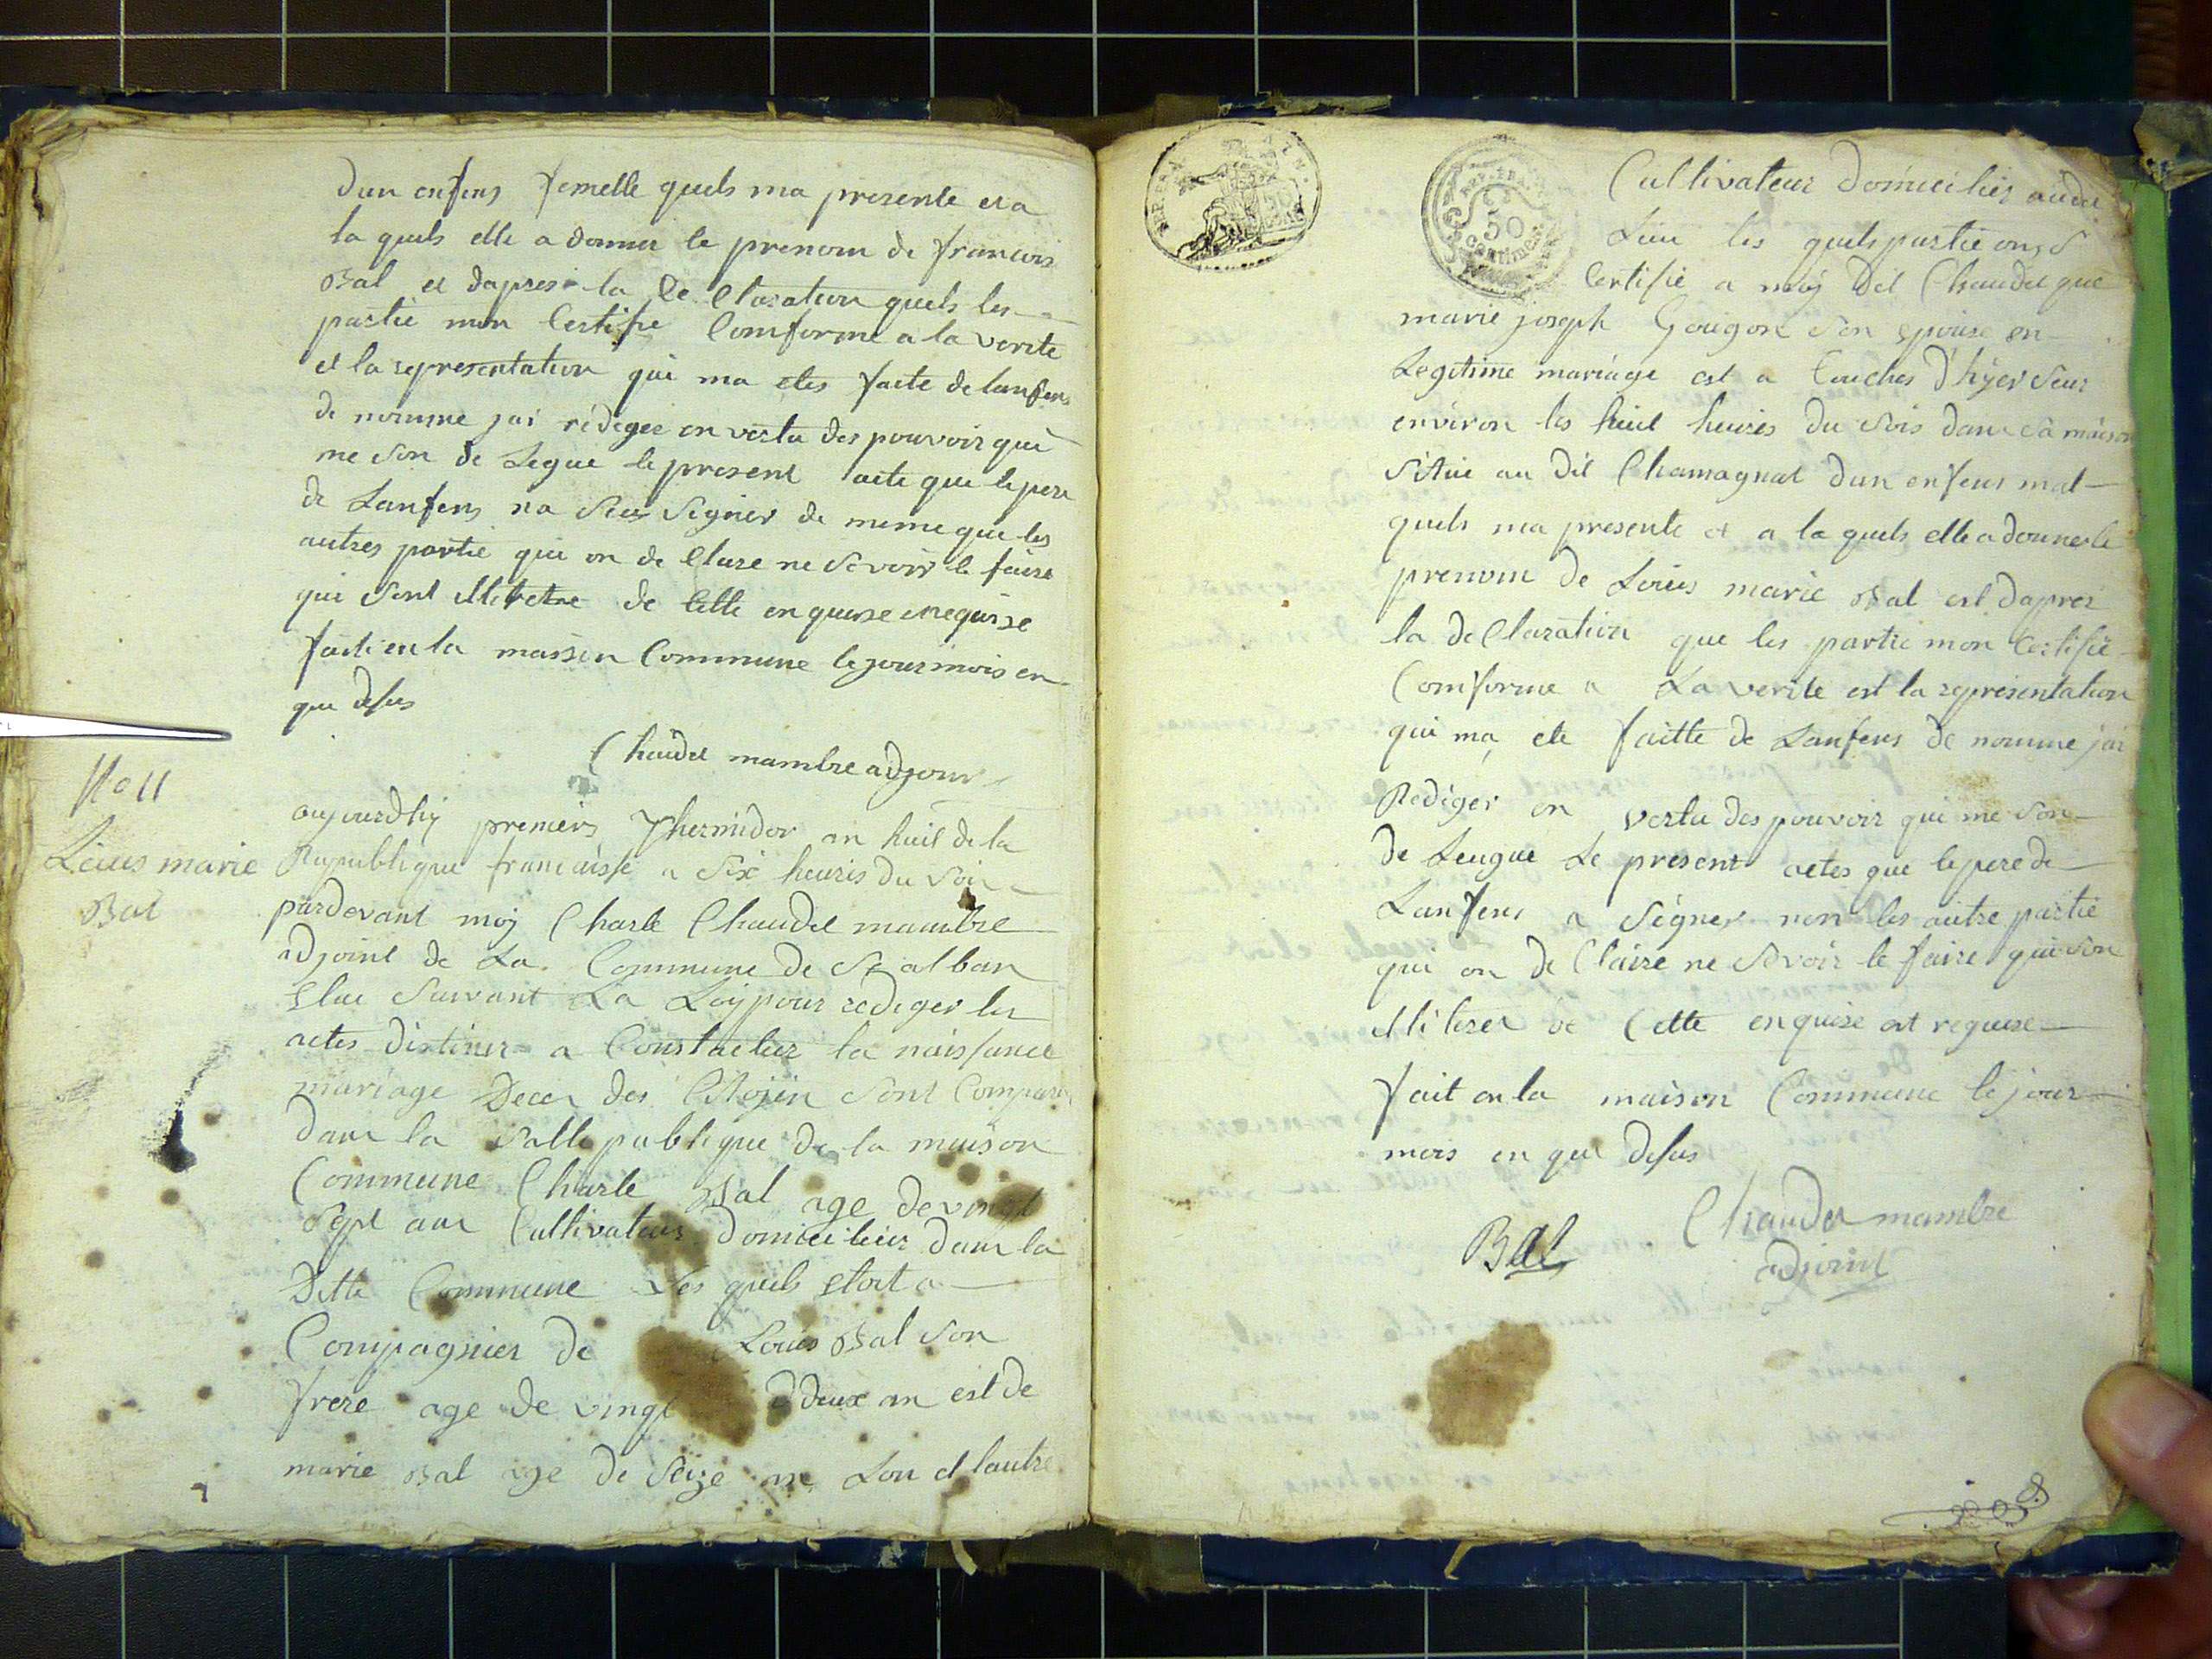 dun enfens femelle quels ma presente et a
la quels elle a donner le prenom de francois
Bal et dapres la de Claration quels les
partie mon Certifie Comforme a la verite
et la representation qui ma etes faite de lanfens
de nomme jai redigee en vertu des pouvoir qui
me son de Legue le present acte que le pere
de Lanfens na Seus Signer de meme que les
autres partie qui on de Clare ne Savoir le faire
qui sont de Cette enquise
fait en la maison Commune le jour mois en
que desus
Chaudet mambre adjoin
No 11
Louis marie
Bal
aujourdhy premiers Thermidor an huit de la
Republique francaisse a Six heures du Soir
pardevant moy Charle Chaudet mambre
adjoint de La Commune de St alban
Elue Suivant La Loy pour rediger les
actes distiner a Constacter la naissance
mariage Deces des Citojin Sont Comparu
dans la Salle publique de la maison
Commune Charle Bal age de vingt
Sept ans Cultivateur domicilier dans la
Ditte Commune Les quels etoit a
Compagnier de Louis Bal Son
frere age de vingt deux an est de
marie Bal age de Seize an Lon et lautre
REP. FRA.
50
centimes
Cultivateur domicilier audit
Lieu les quels partie on
Certifie a moy dit Chaudet que
marie joseph Gouigon Son epouse en
Legitime mariage est a Couches dhyer Seur
environ les huit heures du Soir dans Sa maison
Situe au dit Chamagnat dun enfens mal
quels ma presente et a la quels elle a donner le
prenom de Louis marie Bal est dapres
la de Claration que les partie mon Certifie
Comforme a La verite est la representation
qui ma ete faitte de Lanfens de nomme jai
Rediger en vertu des pouvoir qui me Son
de Leugue Le present actes que le pere de
Lanfens a Signer non les autre partie
qui on de Claire ne Savoir le faire qui Son
Illiterer de Cette enquise et requise
fait en la maison Commune le jour
mois en que desus
Bal
Chaudet mambre
adjoint